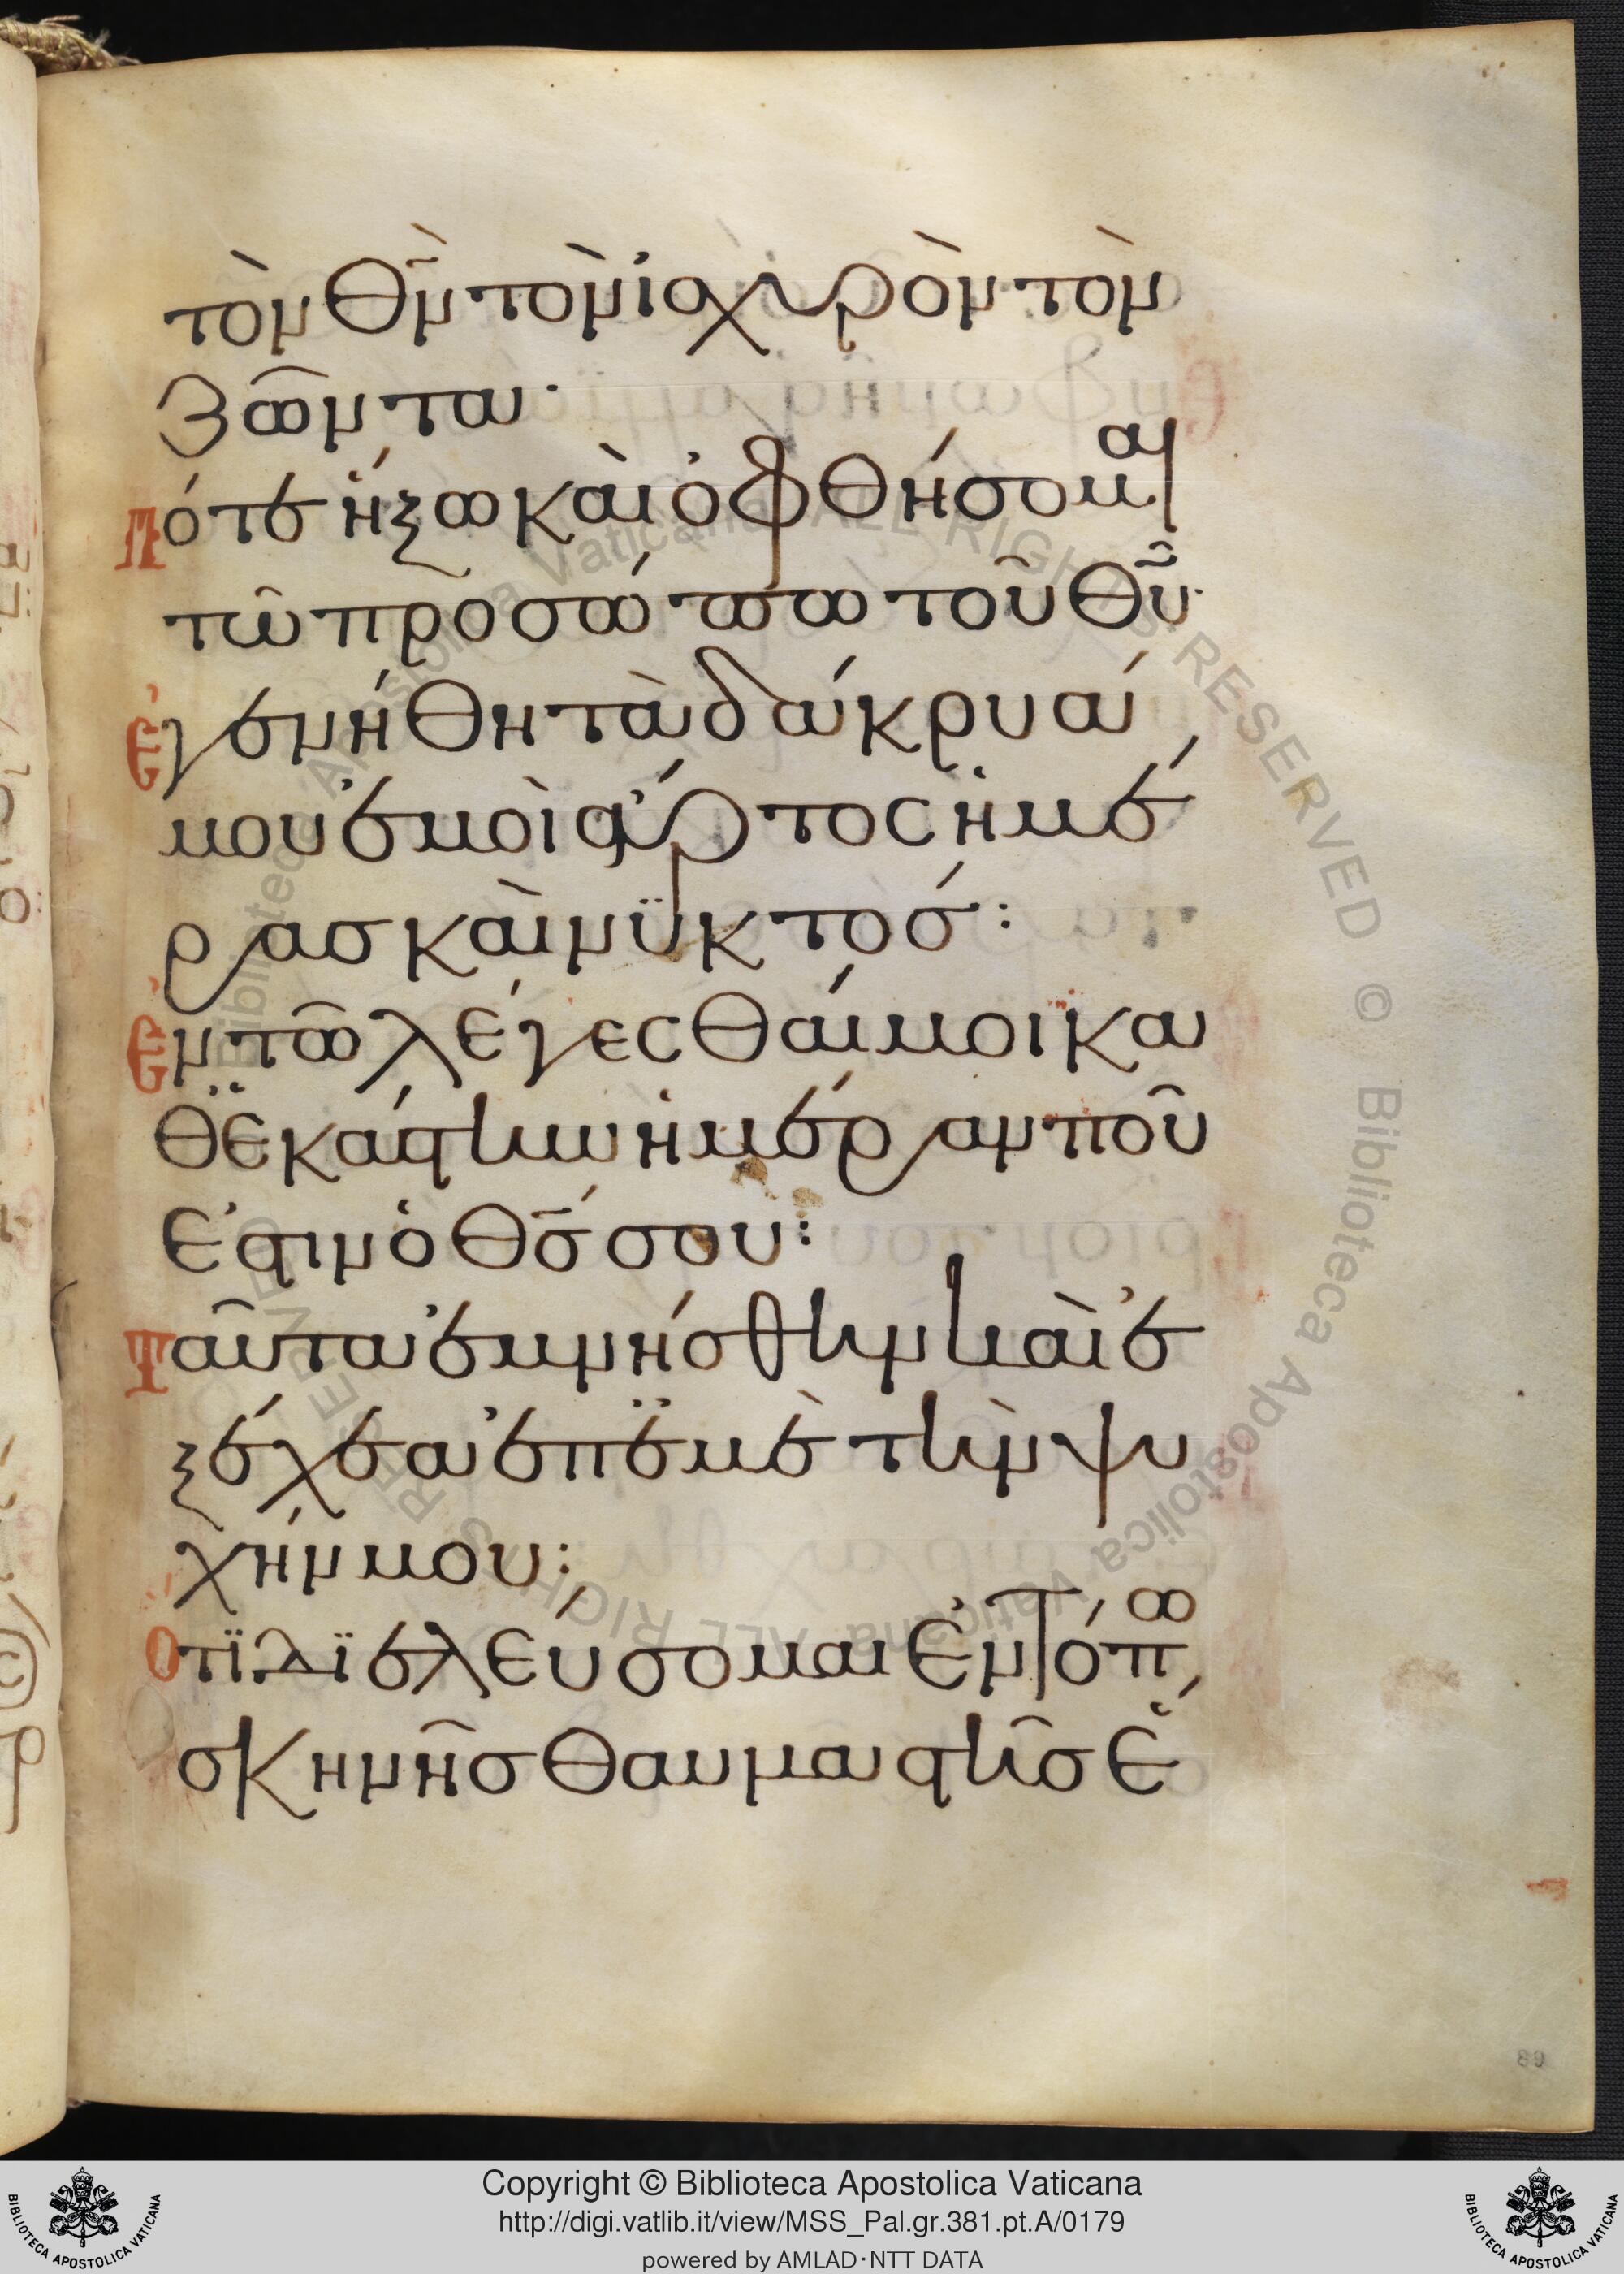 τὸν Θ̅ν̅ τὸν ἰσχυρὸν τὸν
ζῶντα·
πότε ἥξω καὶ ὀφθήσομαι
τῶ προσώπω τοῦ Θ̅υ̅·
ἐγενήθη τὰ δάκρυά
μου ἐμοὶ ἄρτος ἡμέ
ρας καὶ νϋκτός:
ἐν τῶ λέγεσθαί μοι κα
θ̈ ἑκάστην ἡμέραν ποῦ
ἐστιν ὁ Θ̅ς̅ σου:
ταῦτα ἐμνήσθην καὶ ἐ
ξέχεα ἐπ̈ ἐμὲ τὴν ψυ
χήν μου:
ὅτϊ δϊελεύσομαι ἐν τόπω
σκηνῆς θαυμαστῆς ἕ
89
Copyright © Biblioteca Apostolica Vaticana
http://digi.vatlib.it/view/MSS_Pal.gr.381.pt.A/0179
powered by AMLAD·NTT DATA
BIBLIOTECA APOSTOLICA VATICANA
BIBLIOTECA APOSTOLICA VATICANA
Biblioteca Apostolica Vaticana ALL RIGHTS RESERVED © Biblioteca Apostolica Vaticana ALL RIGHTS RESERVED ©